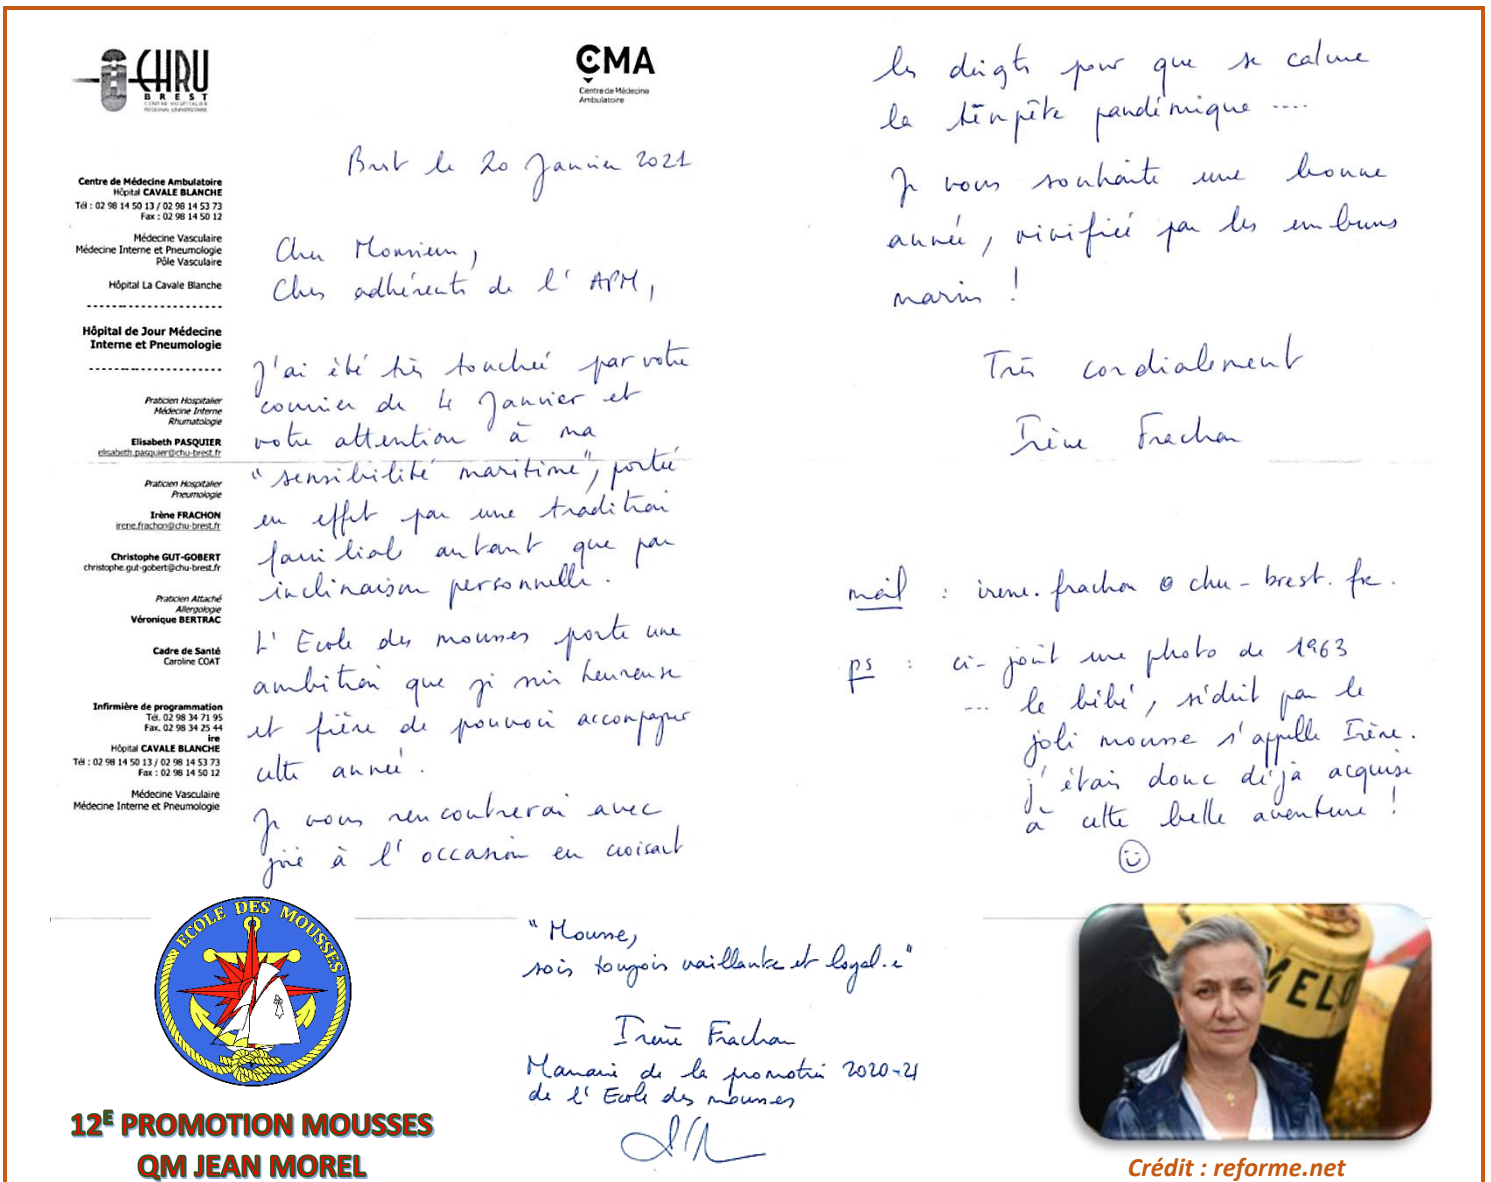 CHRU
BREST
CENTRE HOSPITALIER
REGIONAL UNIVERSITAIRE
CMA
Centre de Médecine
Ambulatoire
Centre de Médecine Ambulatoire
Hôpital CAVALE BLANCHE
Tél : 02 98 14 50 13 / 02 98 14 53 73
Fax : 02 98 14 50 12
Médecine Vasculaire
Médecine Interne et Pneumologie
Pôle Vasculaire
Hôpital La Cavale Blanche
Hôpital de Jour Médecine
Interne et Pneumologie
Praticien Hospitalier
Médecine Interne
Rhumatologie
Elisabeth PASQUIER
elisabeth.pasquier@chu-brest.fr
Praticien Hospitalier
Pneumologie
Irène FRACHON
irene.frachon@chu-brest.fr
Christophe GUT-GOBERT
christophe.gut-gobert@chu-brest.fr
Praticien Attaché
Allergologie
Véronique BERTRAC
Cadre de Santé
Caroline COAT
Infirmière de programmation
Tél. 02 98 34 71 95
Fax. 02 98 34 25 44
ire
Hôpital CAVALE BLANCHE
Tél : 02 98 14 50 13 / 02 98 14 53 73
Fax : 02 98 14 50 12
Médecine Vasculaire
Médecine Interne et Pneumologie
Brest le 20 Janvier 2021
Cher Monsieur,
Chers adhérents de l'APM,
J'ai été très touchée par votre
courrier du 4 Janvier et
votre attention à ma
"sensibilité maritime", portée
en effet par une tradition
familiale autant que par
inclinaison personnelle.
L'Ecole des mousses porte une
ambition que je suis heureuse
et fière de pouvoir accompagner
cette année.
Je vous rencontrerai avec
joie à l'occasion en croisant
les doigts pour que se calme
la tempête pandémique ....
Je vous souhaite une bonne
année, vivifiée par les embruns
marins !
Très cordialement
Irène Frachon
mail : irene.frachon @ chu-brest.fr.
ps : ci-joint une photo de 1963
... le bébé, séduit par le
joli mousse s'appelle Irène.
j'étais donc déjà acquise
à cette belle aventure !
"Mousse,
sois toujours vaillante et loyal.e"
Irène Frachon
Marraine de la promotion 2020-21
de l'Ecole des mousses
ECOLE DES MOUSSES
12E PROMOTION MOUSSES
QM JEAN MOREL
MELO
Crédit : reforme.net